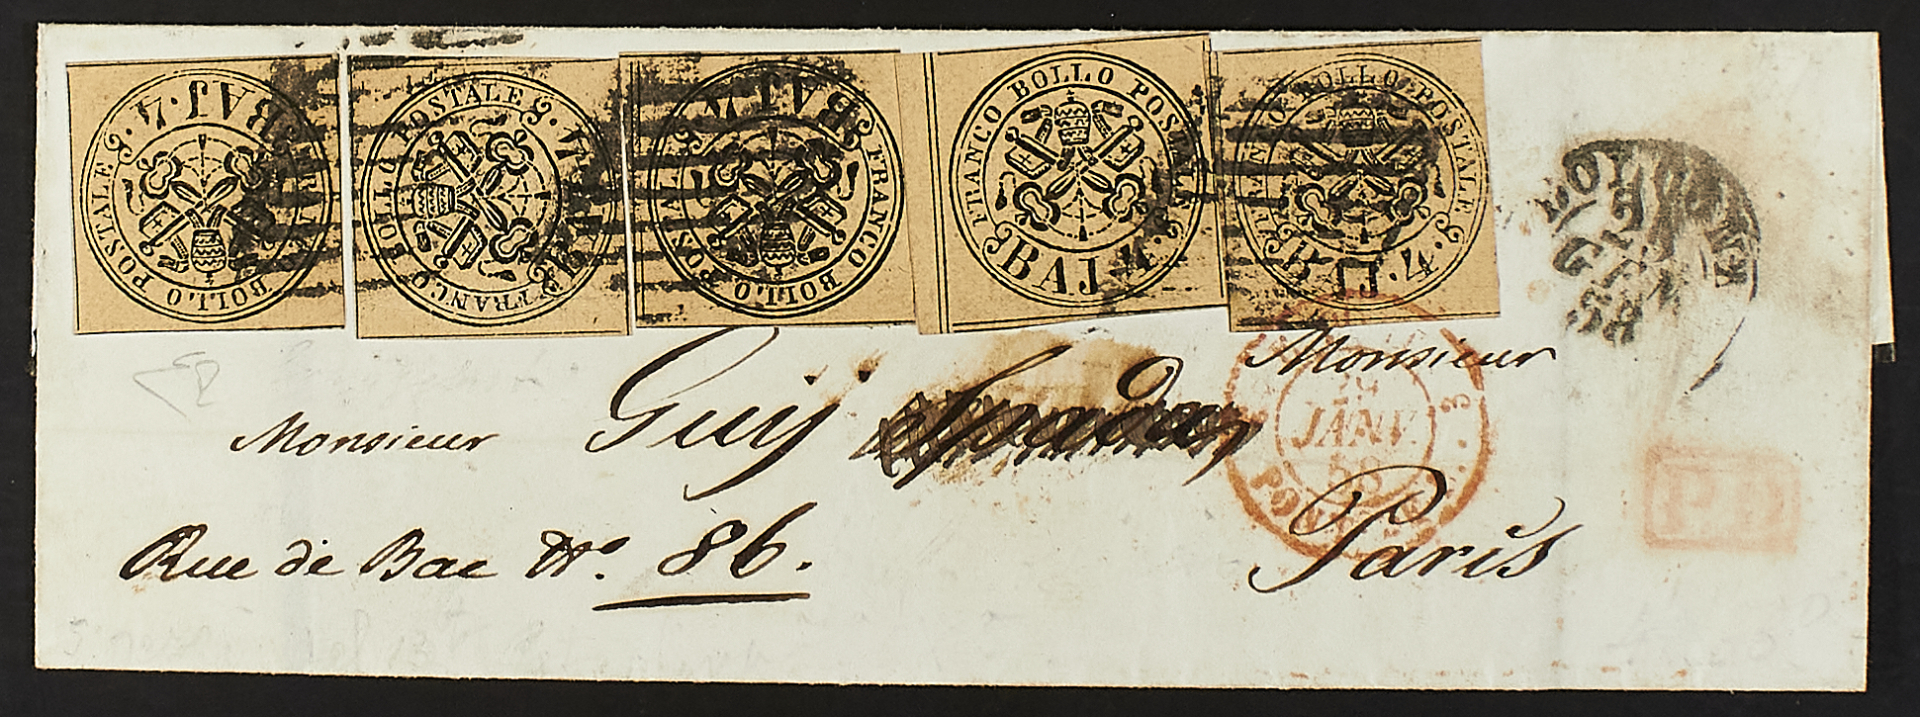 FRANCO BOLLO POSTALE BAJ 4.
FRANCO BOLLO POSTALE BAJ. 4.
FRANCO BOLLO POSTALE BAJ 4.
FRANCO BOLLO POSTALE BAJ 4.
FRANCO BOLLO POSTALE BAJ. 4.
BOLOGNA
GEN
58
Monsieur
Monsieur Guij
JANV.
58
3
Rue de Bac No. 86. Paris
P.D.